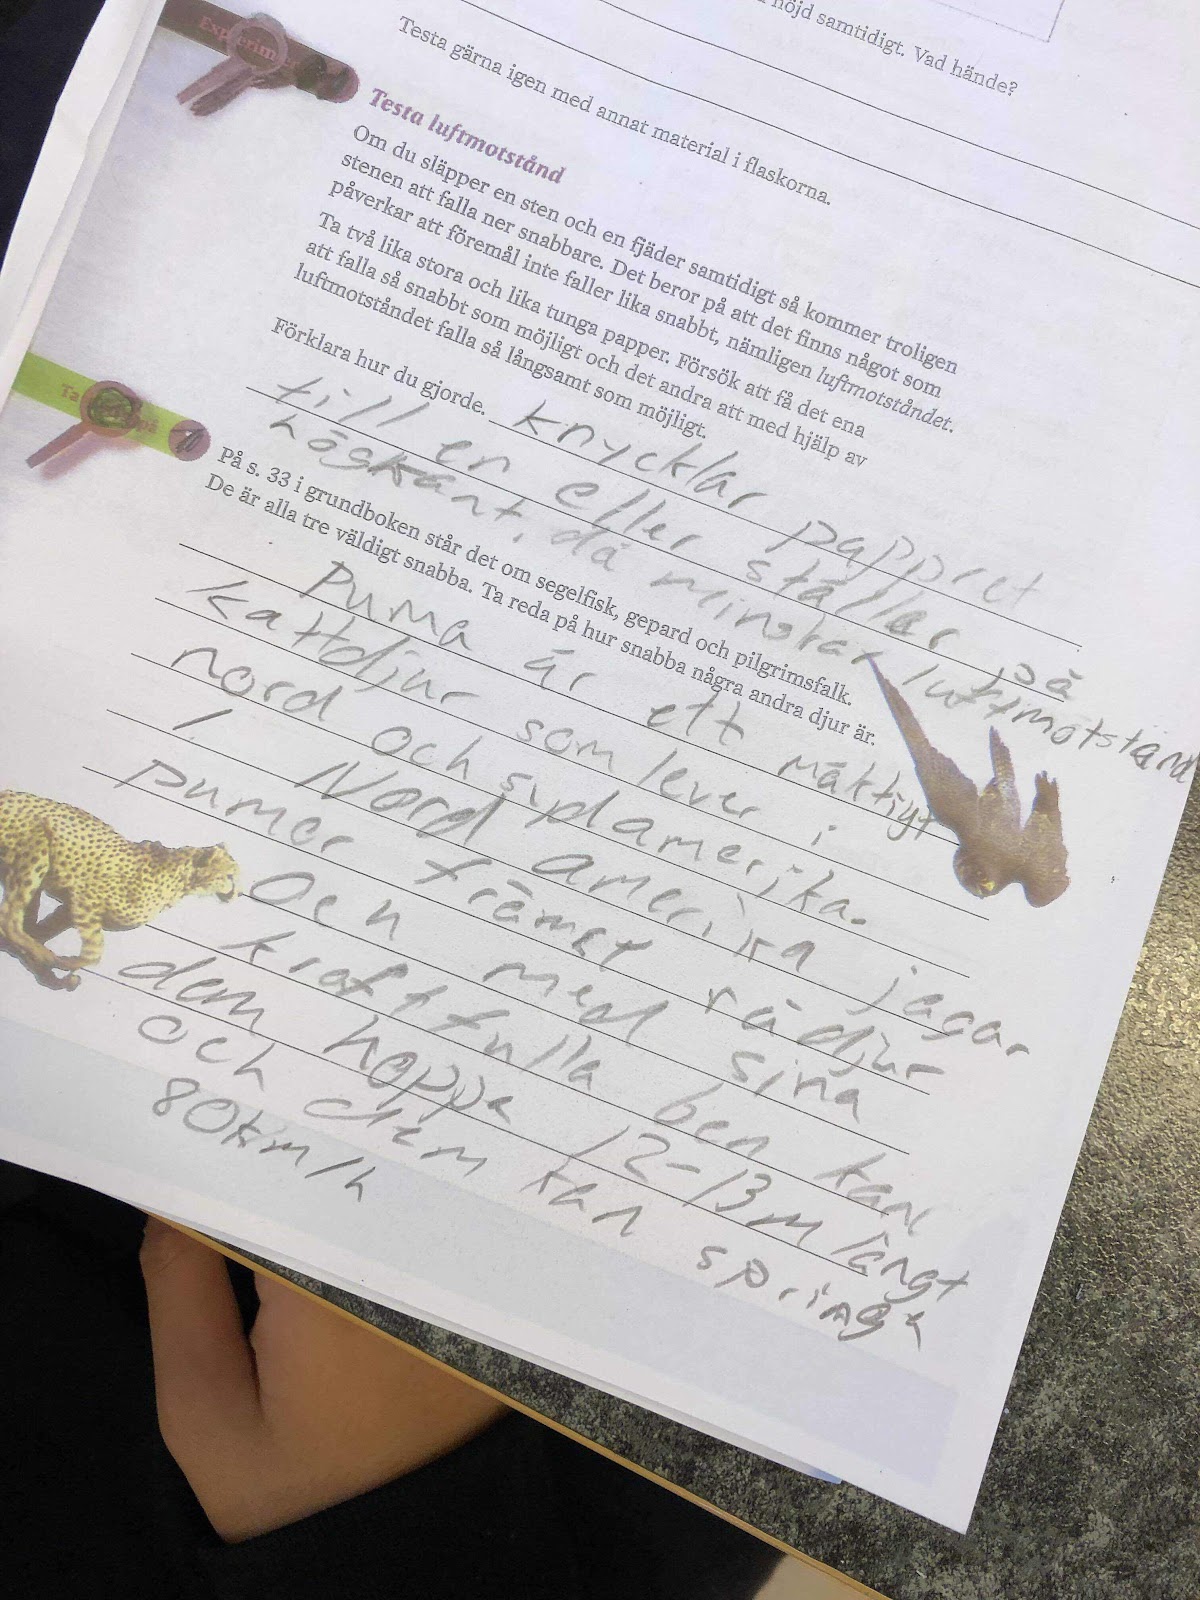 höjd samtidigt. Vad hände?
Testa gärna igen med annat material i flaskorna.
Experiment
Testa luftmotstånd
Om du släpper en sten och en fjäder samtidigt så kommer troligen
stenen att falla ner snabbare. Det beror på att det finns något som
påverkar att föremål inte faller lika snabbt, nämligen luftmotståndet.
Ta två lika stora och lika tunga papper. Försök att få det ena
att falla så snabbt som möjligt och det andra att med hjälp av
luftmotståndet falla så långsamt som möjligt.
Förklara hur du gjorde. knycklar pappret
till en eller ställer på
högkant, då minskar luftmotstånd
Ta reda på
På s. 33 i grundboken står det om segelfisk, gepard och pilgrimsfalk.
De är alla tre väldigt snabba. Ta reda på hur snabba några andra djur är.
Puma är ett mäktigt
kattdjur som lever i
nord och sydamerika.
I Nord amerika jagar
pumer främst rådjur
Och med sina
kraftfulla ben kan
dem hoppa 12-13m långt
och dem kan springa
80km/h